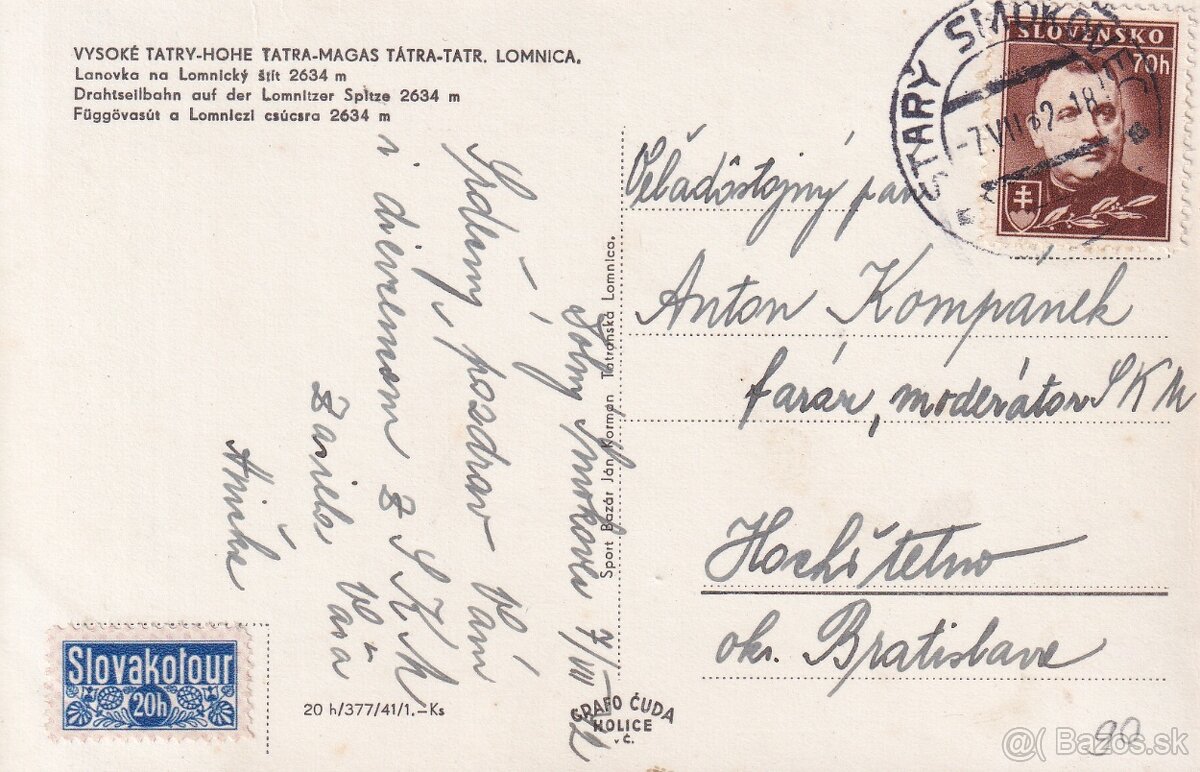 VYSOKÉ TATRY-HOHE TATRA-MAGAS TÁTRA-TATR. LOMNICA.
Lanovka na Lomnický štít 2634 m
Drahtseilbahn auf der Lomnitzer Spitze 2634 m
Függövasút a Lomniczi csúcsra 2634 m
STARÝ SMOKOVEC
-7.VIII.42-18
SLOVENSKO
70h
Veľadôstojný pán
Anton Kompánek
farár, moderátor SKM
Hochštetno
okr. Bratislava
Smokovec 7/VIII 42
Srdečný pozdrav Vám
i dievčencom z SKM
Vaša
Anička
Sport Bazár Ján Korman Tatranská Lomnica.
Slovakotour
20h
20 h/377/41/1.-Ks
GRAFO ČUDA
HOLICE
v Č.
20
@( Bazos.sk